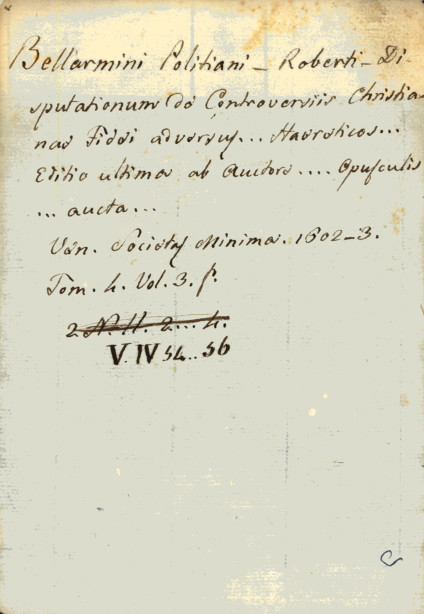 Bellarmini Politiani - Roberti - Di-
sputationum de Controversiis Christia-
nae Fidei adversus... Haereticos...
Editio ultima ab Auctore .... Opusculis
... aucta...
Ven. Societas Minima. 1602-3.
Tom. 4. Vol. 3. f.
2. N. II. 2... 4.
V. IV 54.. 56